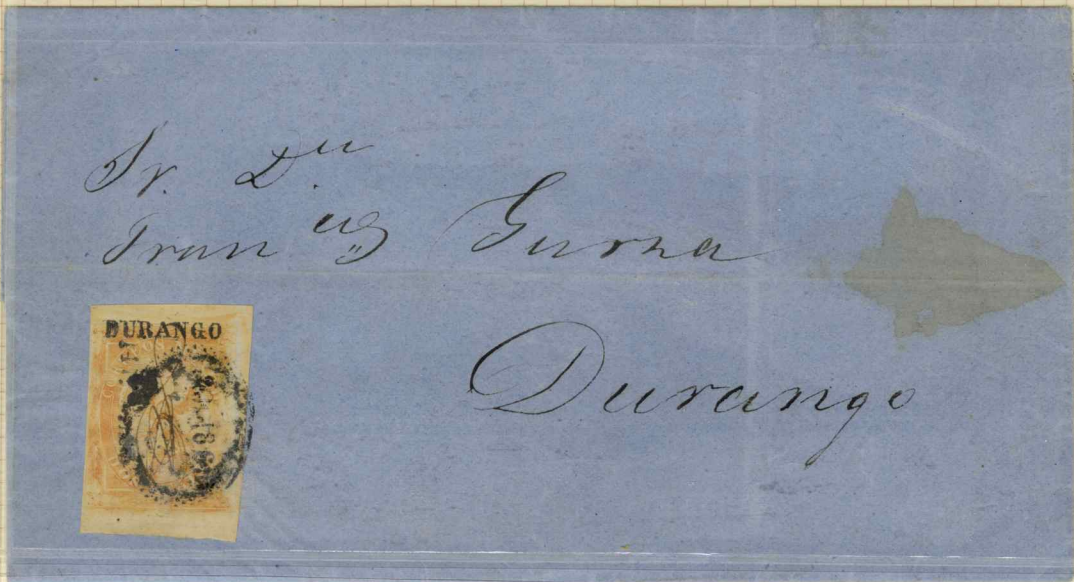 Sr. Dn
Franco Gurza
DURANGO
Durango